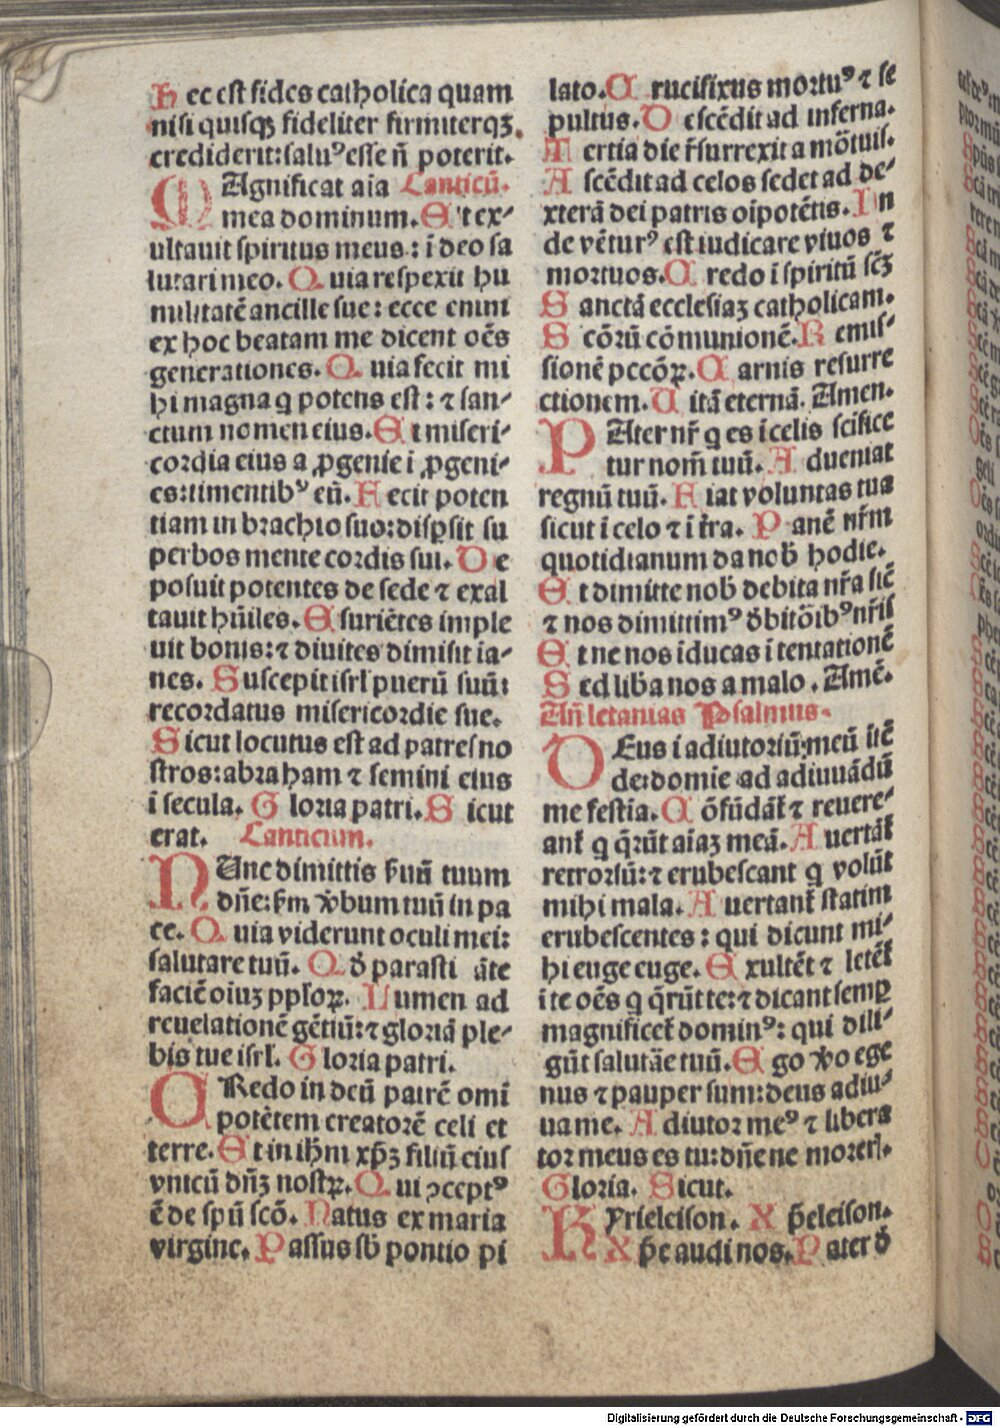 Hec est fides catholica quam
nisi quisqꝫ fideliter firmiterqꝫ
crediderit: saluꝰ esse n̄ poterit.
MAgnificat aīa Canticū.
mea dominum. Et ex⸗
ultauit spiritus meus: ī deo sa
lutari meo. Quia respexit hu
militatē ancille sue: ecce enim
ex hoc beatam me dicent oēs
generationes. Quia fecit mi
hi magna q potens est: ⁊ san⸗
ctum nomen eius. Et miseri⸗
cordia eius a ꝓgenie ī ꝓgeni⸗
es: timentibꝰ eū. Fecit poten
tiam in brachio suo: disꝑsit su
perbos mente cordis sui. De
posuit potentes de sede ⁊ exal
tauit hūiles. Esuriētes imple
uit bonis: ⁊ diuites dimisit ia⸗
nes. Suscepit isrl̄ puerū suū:
recordatus misericordie sue.
Sicut locutus est ad patres no
stros: abraham ⁊ semini eius
ī secula. Gloria patri. Sicut
erat. Canticum.
NUnc dimittis ẜuū tuum
dn̄e: ẜm v̄bum tuū in pa
ce. Quia viderunt oculi mei:
salutare tuū. Qd̄ parasti āte
faciē oiuꝫ pplōꝝ. Lumen ad
reuelationē gētiū: ⁊ gloriā ple⸗
bis tue isrl̄. Gloria patri.
CRedo in deū patrē omī
potētem creatorē celi et
terre. Et in ihm̄ xp̄ꝫ filiū eius
vnicū dn̄ꝫ nostꝝ. Qui ↄceptꝰ
ē de spū scō. Natus ex maria
virgine. Passus sb̄ pontio pi
lato. Crucifixus mortuꝰ ⁊ se
pultus. Descēdit ad inferna.
Tertia die r̄surrexit a mōtuis.
Ascēdit ad celos sedet ad de⸗
xterā dei patris oīpotētis. In
de vēturꝰ est iudicare viuos ⁊
mortuos. Credo ī spiritū sc̄ꝫ
Sanctā ecclesiaꝫ catholicam.
Scōrū cōmunionē. Remis⸗
sionē pccōꝝ. Carnis resurre
ctionem. Uitā eternā. Amen.
PAter nr̄ q es ī celis scifice
tur nom̄ tuū. Adueniat
regnū tuū. Fiat voluntas tua
sicut ī celo ⁊ ī t̄ra. Panē nr̄m
quotidianum da nob̄ hodie.
Et dimitte nob̄ debita nr̄a sic̄
⁊ nos dimittimꝰ d̄bitōibꝰ nr̄is
Et ne nos īducas ī tentationē
Sed liba nos a malo. Amē.
Añ letanias Psalmus.
DEus ī adiutoriū meū itē
de: domie ad adiuuādū
me festīa. Cōfūdāt̄ ⁊ reuere⸗
ant̄ q q̄rūt aīaꝫ meā. Auertāt̄
retrorsū: ⁊ erubescant q volūt
mihi mala. Auertant̄ statim
erubescentes: qui dicunt mi⸗
hi euge euge. Exultēt ⁊ letēt̄
ī te oēs q q̄rūt te: ⁊ dicant semꝑ
magnificet̄ dominꝰ: qui dili⸗
gūt salutāe tuū. Ego v̄o ege
nus ⁊ pauper sum: deus adiu⸗
ua me. Adiutor meꝰ ⁊ libera
tor meus es tu: dn̄e ne morer̄.
Gloria. Sicut.
KYrieleison. Xp̄eleison.
Xp̄e audi nos. Pater d̄
Digitalisierung gefördert durch die Deutsche Forschungsgemeinschaft - DFG